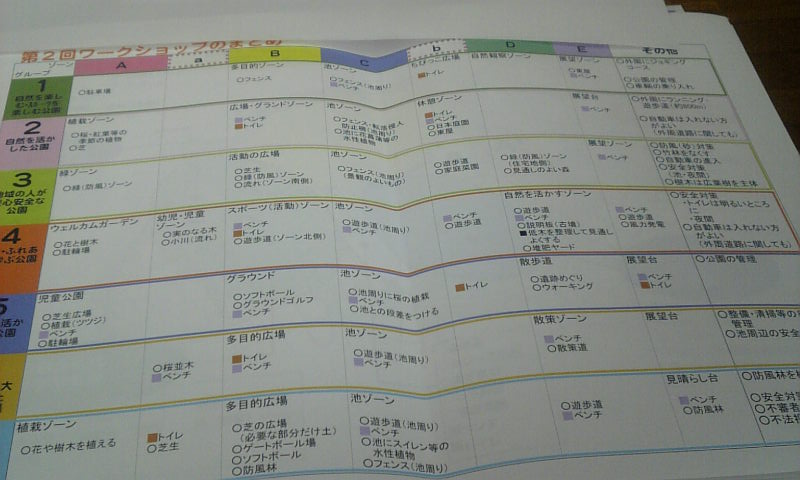 第2回ワークショップのまとめ
ゾーン
グループ
A
a
B
C
b
D
E
その他
1
自然を楽し
む・スポーツを
楽しむ公園
○駐車場
多目的ゾーン
○フェンス
池ゾーン
○フェンス(池周り)
ベンチ
ちびっこ広場
トイレ
自然観察ゾーン
展望ゾーン
○東屋
ベンチ
○外周にジョギング
コース
○公園の管理
○車輌の乗り入れ
2
自然を活か
した公園
植栽ゾーン
○桜・紅葉等の
季節の植物
○芝
広場・グランドゾーン
ベンチ
トイレ
池ゾーン
○フェンス・転落侵入
防止柵(池周り)
○池に花菖蒲等の
水性植物
休憩ゾーン
トイレ
ベンチ
○日本庭園
○東屋
展望台
ベンチ
○外周にランニング・
○自動車は入れない方
がよい
(外周道路に関しても)
3
地域の人が
安心安全な
公園
緑ゾーン
○緑(防風)ゾーン
活動の広場
○芝生
○緑(防風)ゾーン
○流れ(ゾーン南側)
池ゾーン
○フェンス(池周り)
(景観のよいもの)
○遊歩道
○家庭菜園
○緑(防風)ゾーン
(住宅地側)
○見通しのよい森
展望ゾーン
ベンチ
○防風(砂)対策
○竹林をなくす
○自動車の進入
○安全対策
(池・夜間)
○樹木は広葉樹を主体
4
ふれあ
ぶ公園
ウェルカムガーデン
○花と樹木
○駐輪場
幼児・児童
ゾーン
○実のなる木
○小川(流れ)
スポーツ(活動)ゾーン
ベンチ
トイレ
○遊歩道(ゾーン北側)
池ゾーン
○遊歩道(池周り)
ベンチ
ベンチ
○遊歩道
自然を活かすゾーン
○遊歩道
ベンチ
○説明板(古墳)
■低木を整理して見通し
よくする
○堆肥ヤード
ベンチ
○遊歩道
○風力発電
○安全対策
・トイレは明るいところ
に
・夜間
○自動車は入れない方
がよい
(外周道路に関しても)
5
活か
公園
児童公園
○芝生広場
○植栽(ツツジ)
ベンチ
○駐輪場
グラウンド
○ソフトボール
○グラウンドゴルフ
ベンチ
池ゾーン
○池周りに桜の植栽
ベンチ
○池との段差をつける
トイレ
散歩道
○遺跡めぐり
○ウォーキング
展望台
ベンチ
トイレ
○公園の管理
大
○桜並木
ベンチ
多目的広場
トイレ
ベンチ
池ゾーン
○遊歩道(池周り)
ベンチ
散策ゾーン
ベンチ
○散策道
展望台
○整備・清掃等の
管理
○池周辺の安全
植栽ゾーン
○花や樹木を植える
トイレ
○芝生
多目的広場
○芝の広場
(必要な部分だけ土)
○ゲートボール場
○ソフトボール
○防風林
池ゾーン
○遊歩道(池周り)
ベンチ
○池にスイレン等の
水性植物
○フェンス(池周り)
○遊歩道
ベンチ
見晴らし台
ベンチ
○防風林
○防風林を
○安全対
○不審者
○不法